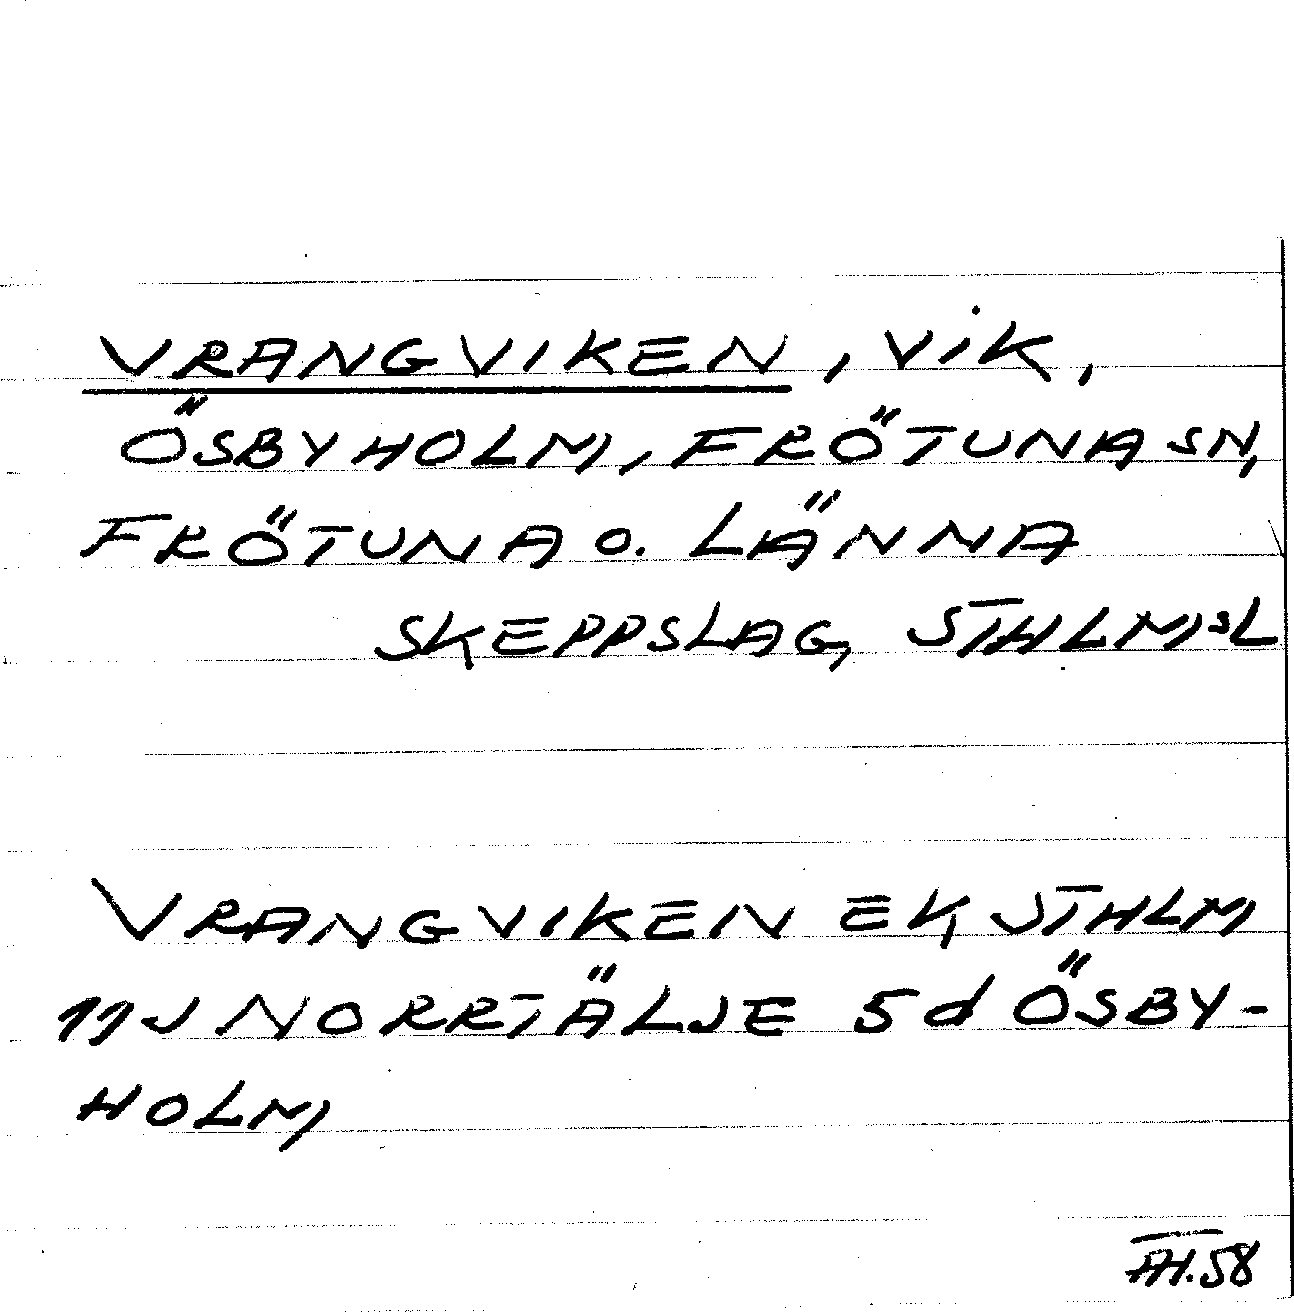 VRANGVIKEN, VIK,
ÖSBYHOLM, FRÖTUNA SN,
FRÖTUNA o. LÄNNA
SKEPPSLAG, STHLMSL
VRANGVIKEN EK, STHLM
11J NORRTÄLJE 5d ÖSBY-
HOLM